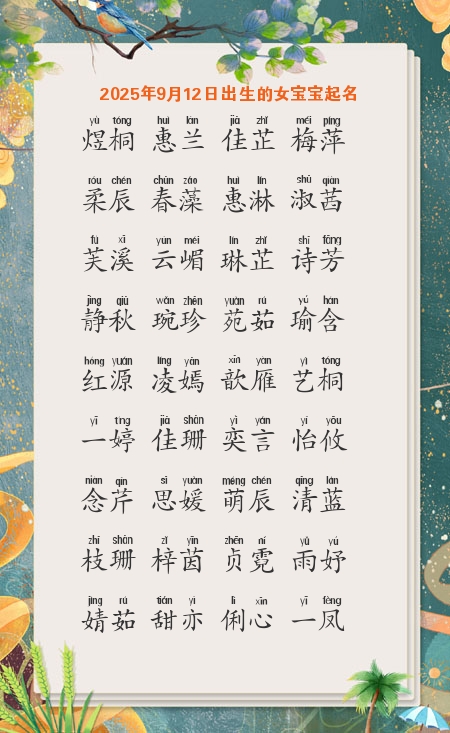 2025年9月12日出生的女宝宝起名
yù tóng huì lán jiā zhǐ méi píng
煜桐 惠兰 佳芷 梅萍
róu chén chūn zǎo huì lín shū qiàn
柔辰 春藻 惠淋 淑茜
fú xī yún méi lín zhǐ shī fāng
芙溪 云嵋 琳芷 诗芳
jìng qiū wǎn zhēn yuàn rú yú hán
静秋 琬珍 苑茹 瑜含
hóng yuán líng yān xīn yàn yì tóng
红源 凌嫣 歆雁 艺桐
yī tíng jiā shān yì yán yí yōu
一婷 佳珊 奕言 怡攸
niàn qín sī yuàn méng chén qīng lán
念芹 思媛 萌辰 清蓝
zhī shān zǐ yīn zhēn ní yǔ yú
枝珊 梓茵 贞霓 雨妤
jìng rú tián yì lì xīn yī fèng
婧茹 甜亦 俐心 一凤